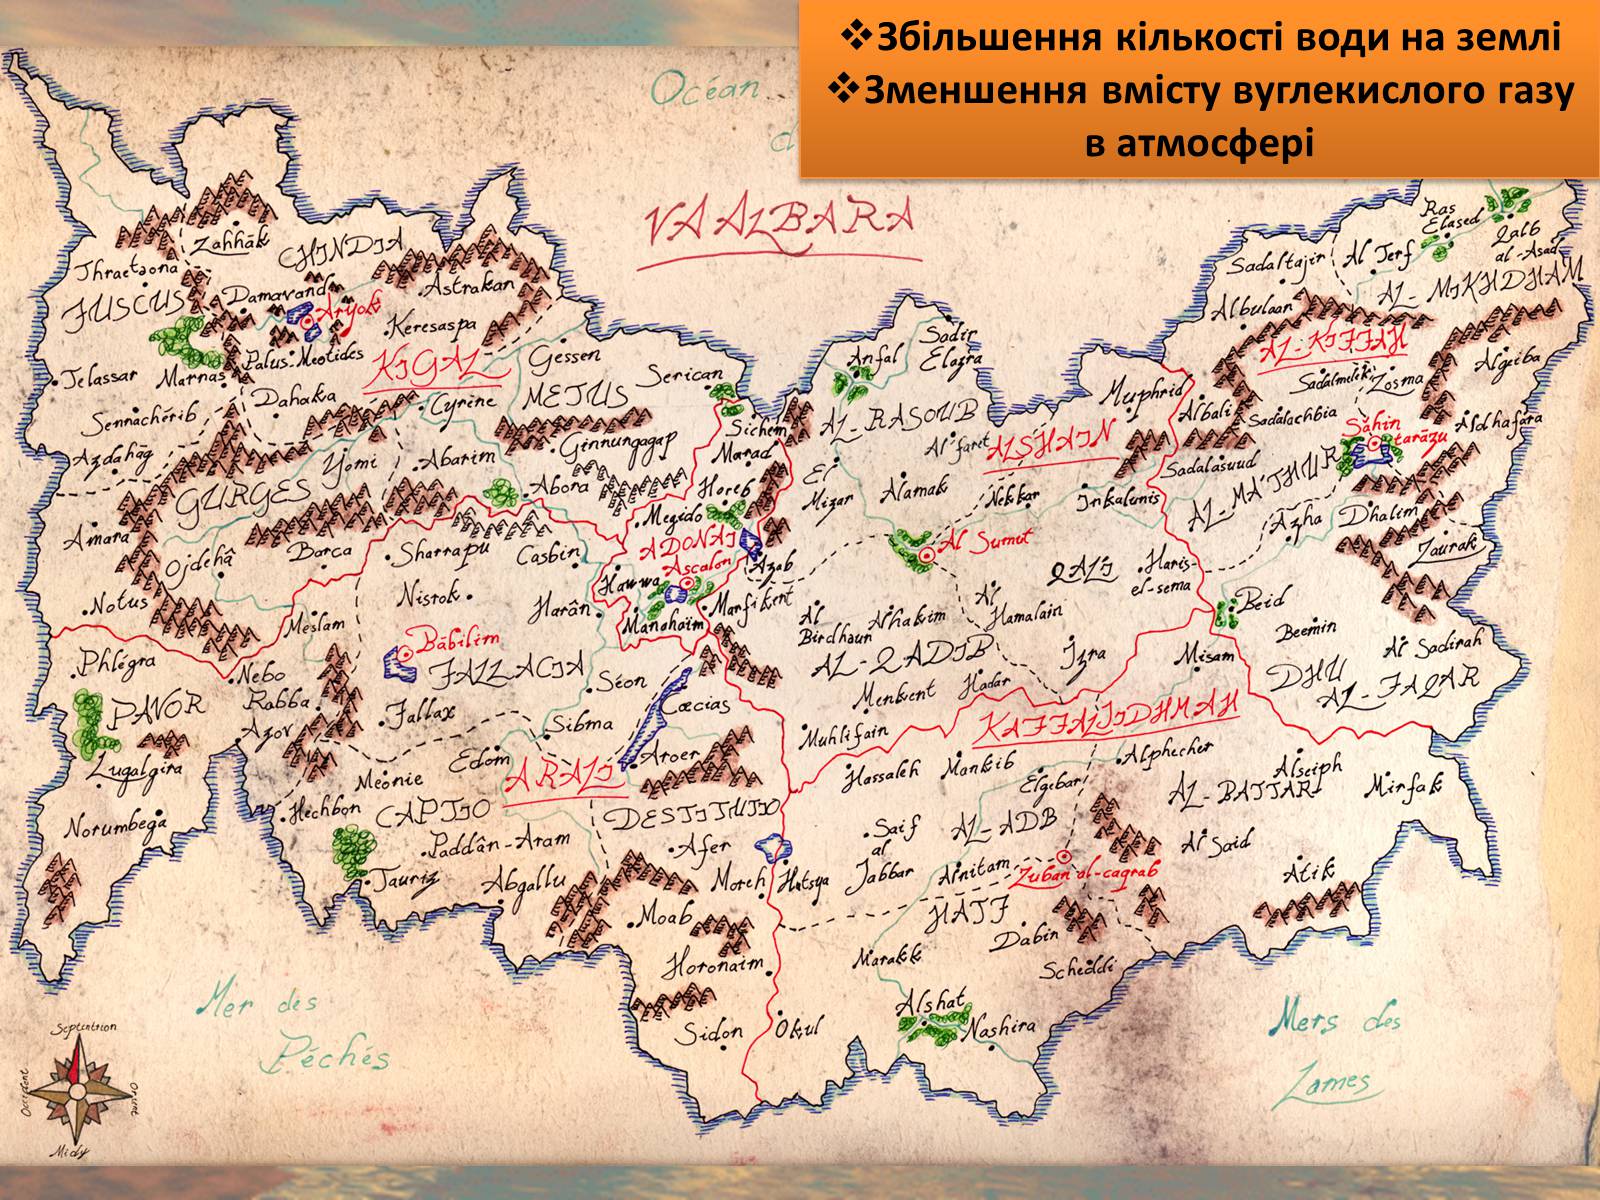 ❖Збільшення кількості води на землі
❖Зменшення вмісту вуглекислого газу
в атмосфері
Océan
VAALBARA
Ras
Elased
Qalb
al-Asad
Zahhāk
CHINDIA
Sadaltajir
Al Jerf
Thraetaona
Astrakan
AL-MIKHDHAM
FUSCUS
Damavand
Aryok
Albulaan
Keresaspa
Sadir
Elazra
AL-KIFFAH
Palus-Meotides
Gessen
Anfal
Algeiba
Telassar
Marnas
KIGAL
Serican
Sadalmelik
Zosma
Dahaka
Cyrine
METUS
Muphrid
Albali
Sennachérib
Sichem
AL-RASOUB
Sadalachbia
Sahin
tarāzu
Aldhafara
Ginnungagap
Marad
Al faret
ALSHAIN
Azdahāg
Yomi
Abarim
El
Mizar
Sadalasuud
GURGES
Abora
Horeb
Alamak
Nekkar
Inkalunis
AL-MA'THUR
Megido
Azha
Dhalim
Amara
Barca
Sharrapu
Casbin
ADONAI
Al Sumut
Zaurak
Ojdehâ
Ascalon
Azab
QALI
Haris-
el-sema
Hawwa
Nisrok
Harân
Marfikent
Al
Hamalain
Beid
Notus
Meslam
Manahaim
Al
Birdhaun
Alhakim
Beemin
Bābilim
Al Sadirah
Phlégra
Nebo
FALLACIA
AL-QADIB
Izra
Misam
DHU
AL-FAQAR
Séon
Rabba
Menkent
Hadar
PAVOR
Fallax
Cæcias
Azov
Sibma
Muhlifain
KAFFALJIDHMAH
Edom
Aroer
Alphecher
Lugalgira
Méonie
ARALI
Hassaleh
Mankib
Elgebar
Alseiph
Hechbon
CAPTIO
DESTITUTIO
AL-BATTAR
Mirfak
Norumbega
Saif
al
Jabbar
AL-ADB
Paddân-Aram
Afer
Al Said
Tauriz
Abgallu
Moreh
Hatsya
Arnitam
Zuban al-caqrab
Atik
Moab
HATF
Dabin
Horonaim
Marakk
Scheddi
Mer des
Péchés
Alshat
Mers des
Lames
Sidon
Okul
Nashira
Septentrion
Occident
Orient
Midy